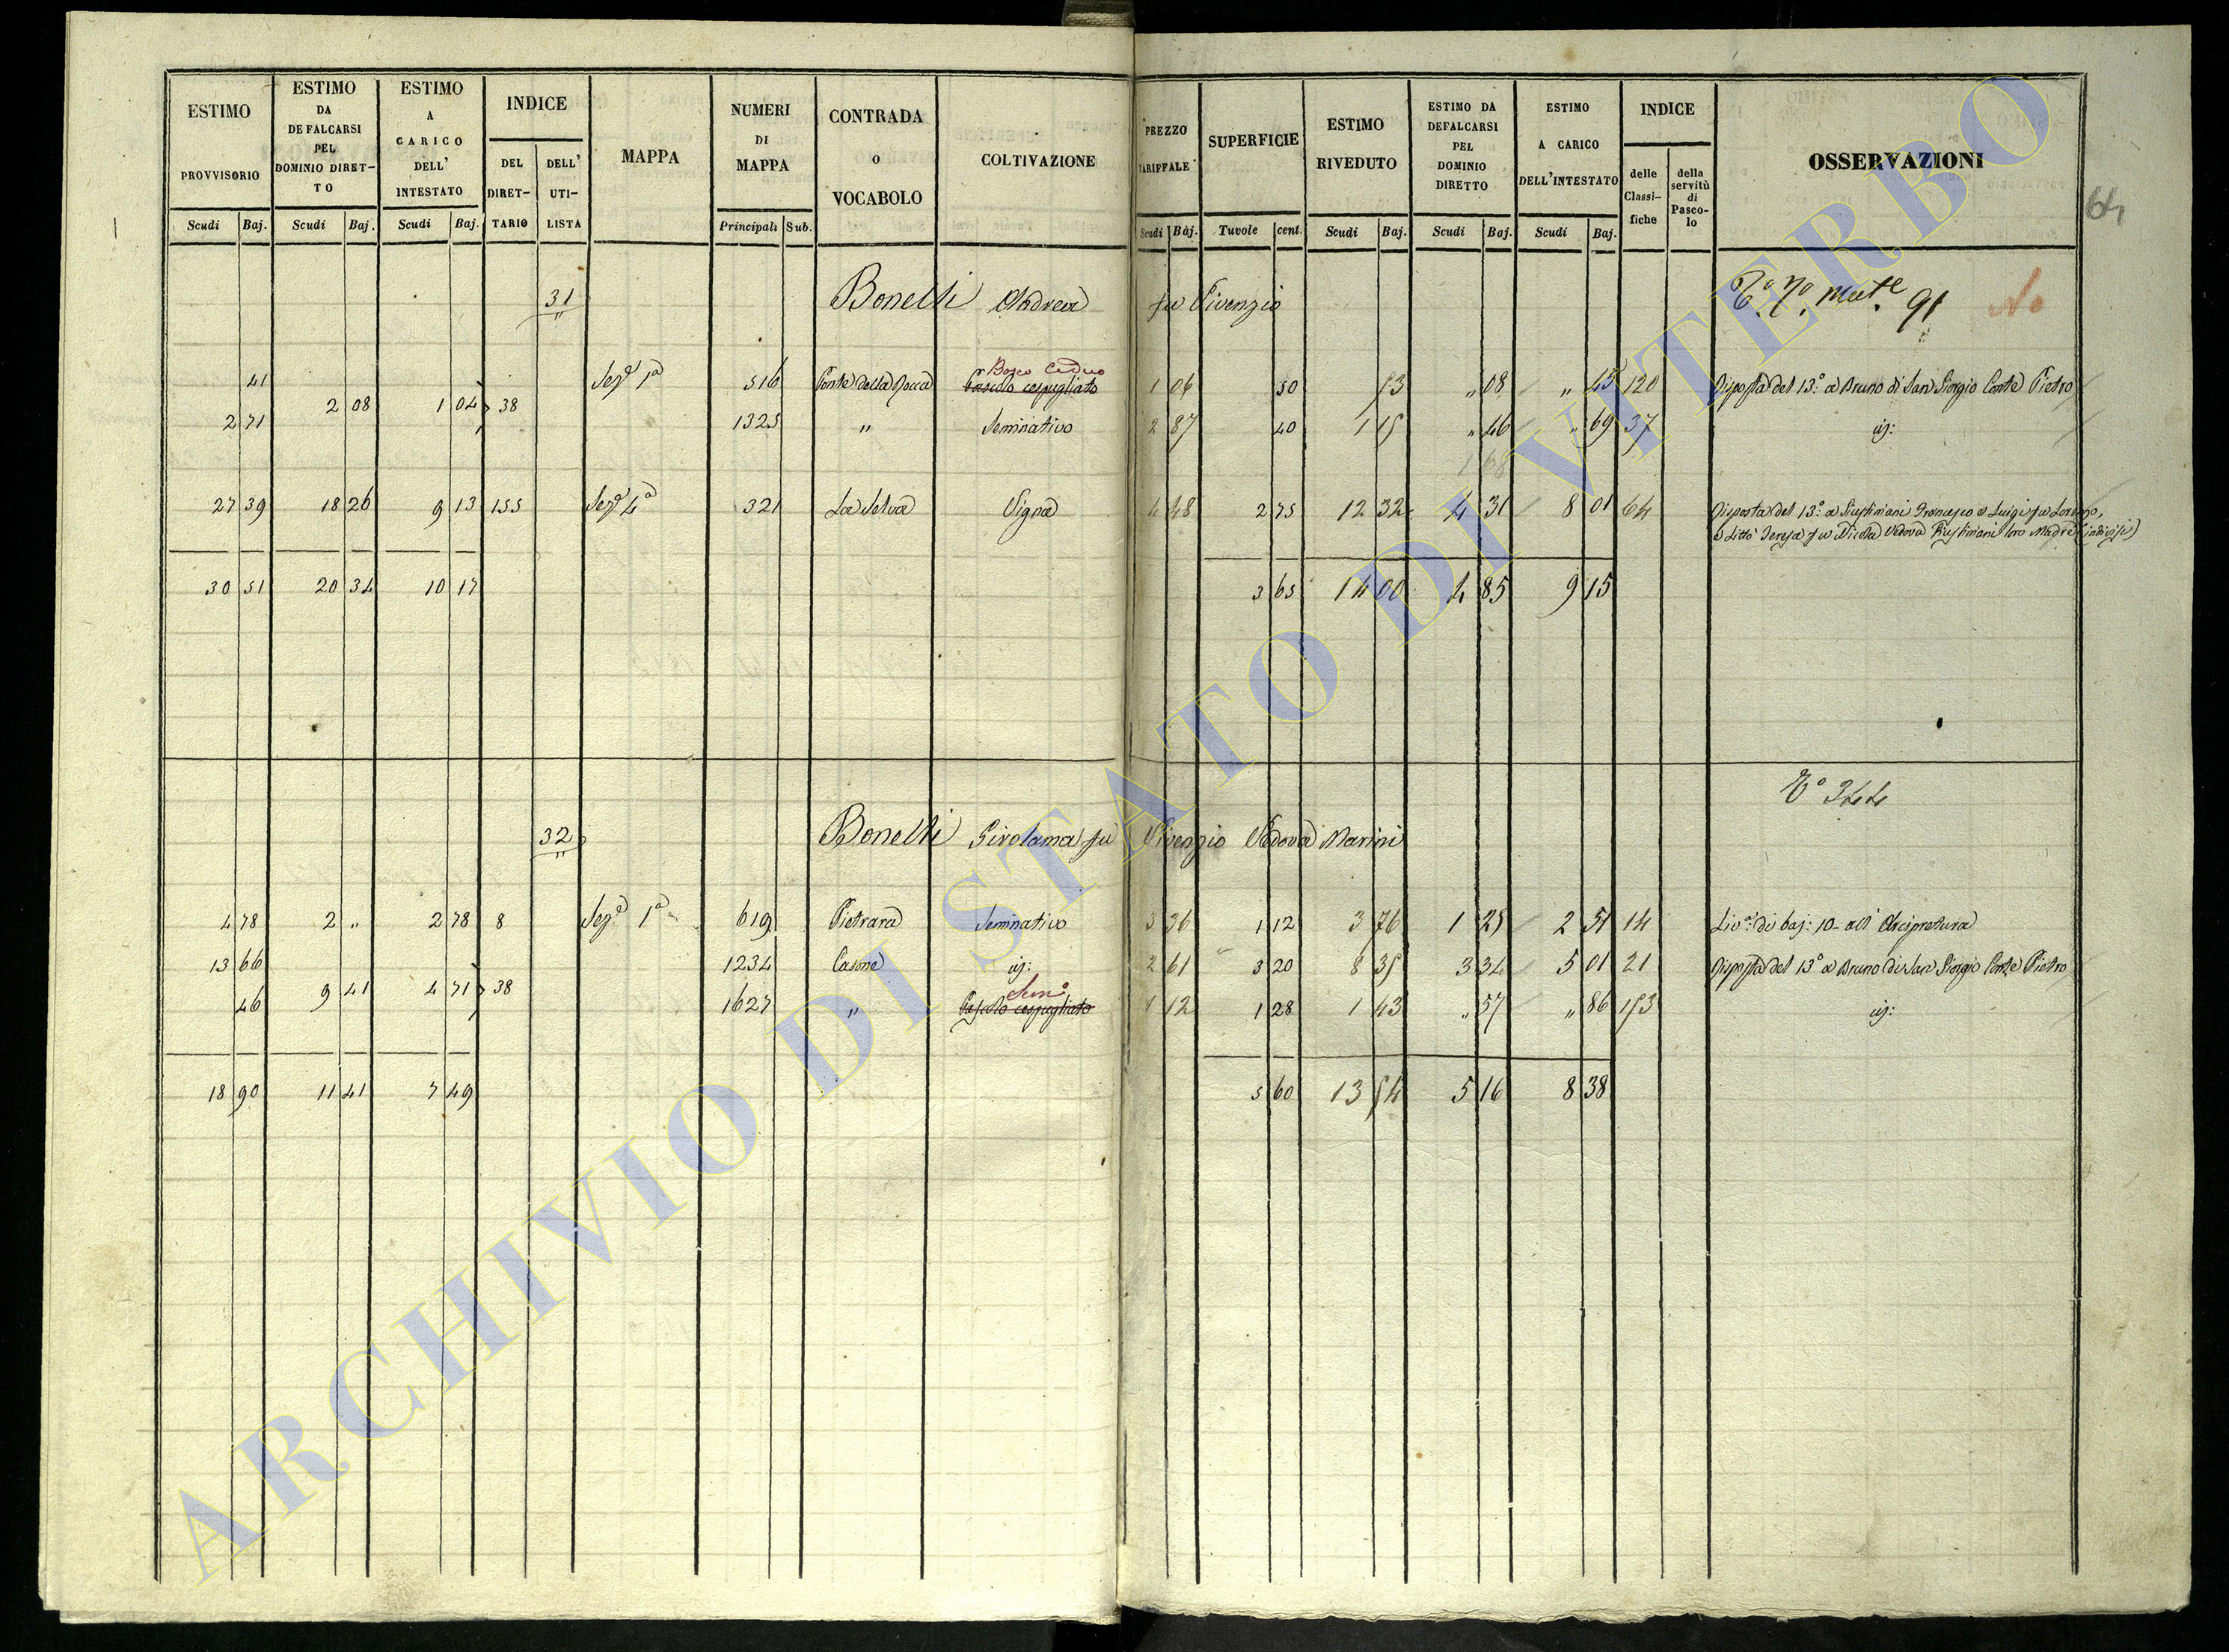 ESTIMO PROVVISORIO Scudi Baj.
ESTIMO DA DEFALCARSI PEL DOMINIO DIRET-TO Scudi Baj.
ESTIMO A CARICO DELL' INTESTATO Scudi Baj.
INDICE DEL DIRET-TARIO DELL' UTI-LISTA
MAPPA
NUMERI DI MAPPA Principali Sub.
CONTRADA O VOCABOLO
COLTIVAZIONE
PREZZO TARIFFALE Scudi Baj.
SUPERFICIE Tavole cent.
ESTIMO RIVEDUTO Scudi Baj.
ESTIMO DA DEFALCARSI PEL DOMINIO DIRETTO Scudi Baj.
ESTIMO A CARICO DELL'INTESTATO Scudi Baj.
INDICE delle Classi-fiche della servitù di Pasco-lo
OSSERVAZIONI
64
31 Bonelli Andrea fu Vivenzio 91 No
Bosco Ceduo
41 Sez.e 1a 516 Ponte della Rocca Pascolo cespugliato 1 06 50 53 " 08 " 45 120 Risposta del 13.o a Bruno di San Giorgio Conte Pietro
2 08 1 04 38
2 71 1325 " Seminativo 2 87 40 1 15 " 46 " 69 37 id:
27 39 18 26 9 13 155 Sez.e 4a 321 La Selva Vigna 4 48 2 75 12 32 4 31 8 01 64 Risposta del 13.o a Giustiniani Francesco e Luigi fu Lorenzo,
e Litti Teresa fu Nicola Vedova Giustiniani loro Madre (indivisi)
30 51 20 34 10 17 3 65 14 00 4 85 9 15
32 Bonelli Girolama fu Vivenzio Vedova Marini
4 78 2 " 2 78 8 Sez.e 1a 619 Pietrara Seminativo 3 36 1 12 3 76 1 25 2 51 14 Liv.a di baj: 10 all' Arcipretura
13 66 1234 Casone id: 2 61 3 20 8 35 3 34 5 01 21 Risposta del 13.o a Bruno di San Giorgio Conte Pietro
9 41 4 71 38 Sem.o
46 1627 " Pascolo cespugliato 1 12 1 28 1 43 " 57 " 86 153 id:
18 90 11 41 7 49 5 60 13 54 5 16 8 38
ARCHIVIO DI STATO DI VITERBO